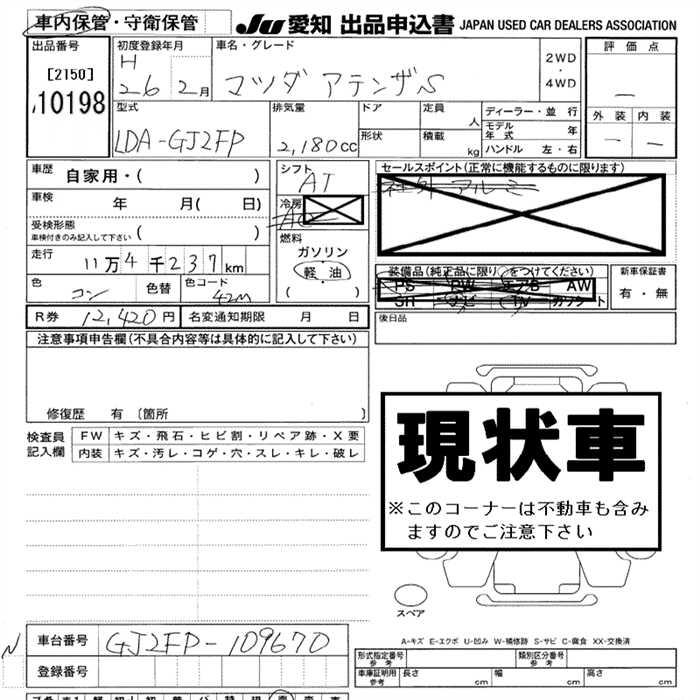 車内保管・守衛保管 JU 愛知 出品申込書 JAPAN USED CAR DEALERS ASSOCIATION
出品番号 初度登録年月 車名・グレード 2WD・4WD 評価点
[2150] H 26 2月 マツダ アテンザS
10198
型式 排気量 ドア 定員 人 ディーラー・並行 外装 内装
LDA-GJ2FP 2,180cc 形状 積載 kg モデル年式 年
ハンドル 左・右
車歴 自家用・( ) シフト AT セールスポイント(正常に機能するものに限ります)
車検 年 月( 日) 冷房 AC 社外アルミ
受検形態 ( )
車検付きのみ記入して下さい
燃料 ガソリン
走行 11万4千237km 軽油 装備品(純正品に限り○をつけてください) 新車保証書
( ) PS PW エアB AW 有・無
色 コン 色替 色コード 42M SR ナビ TV カセット
R券 12,420円 名変通知期限 月 日 後日品
注意事項申告欄(不具合内容等は具体的に記入して下さい)
修復歴 有 〔箇所 〕
現状車
※このコーナーは不動車も含み
ますのでご注意下さい
検査員記入欄 FW キズ・飛石・ヒビ割・リペア跡・X要
内装 キズ・汚レ・コゲ・穴・スレ・キレ・破レ
スペア
A-キズ E-エクボ U-凹み W-補修跡 S-サビ C-腐食 XX-交換済
N 車台番号 GJ2FP-109670
登録番号
形式指定番号 参考 類別区分番号 参考
車庫証明用 参考 長さ cm 幅 cm 高さ cm